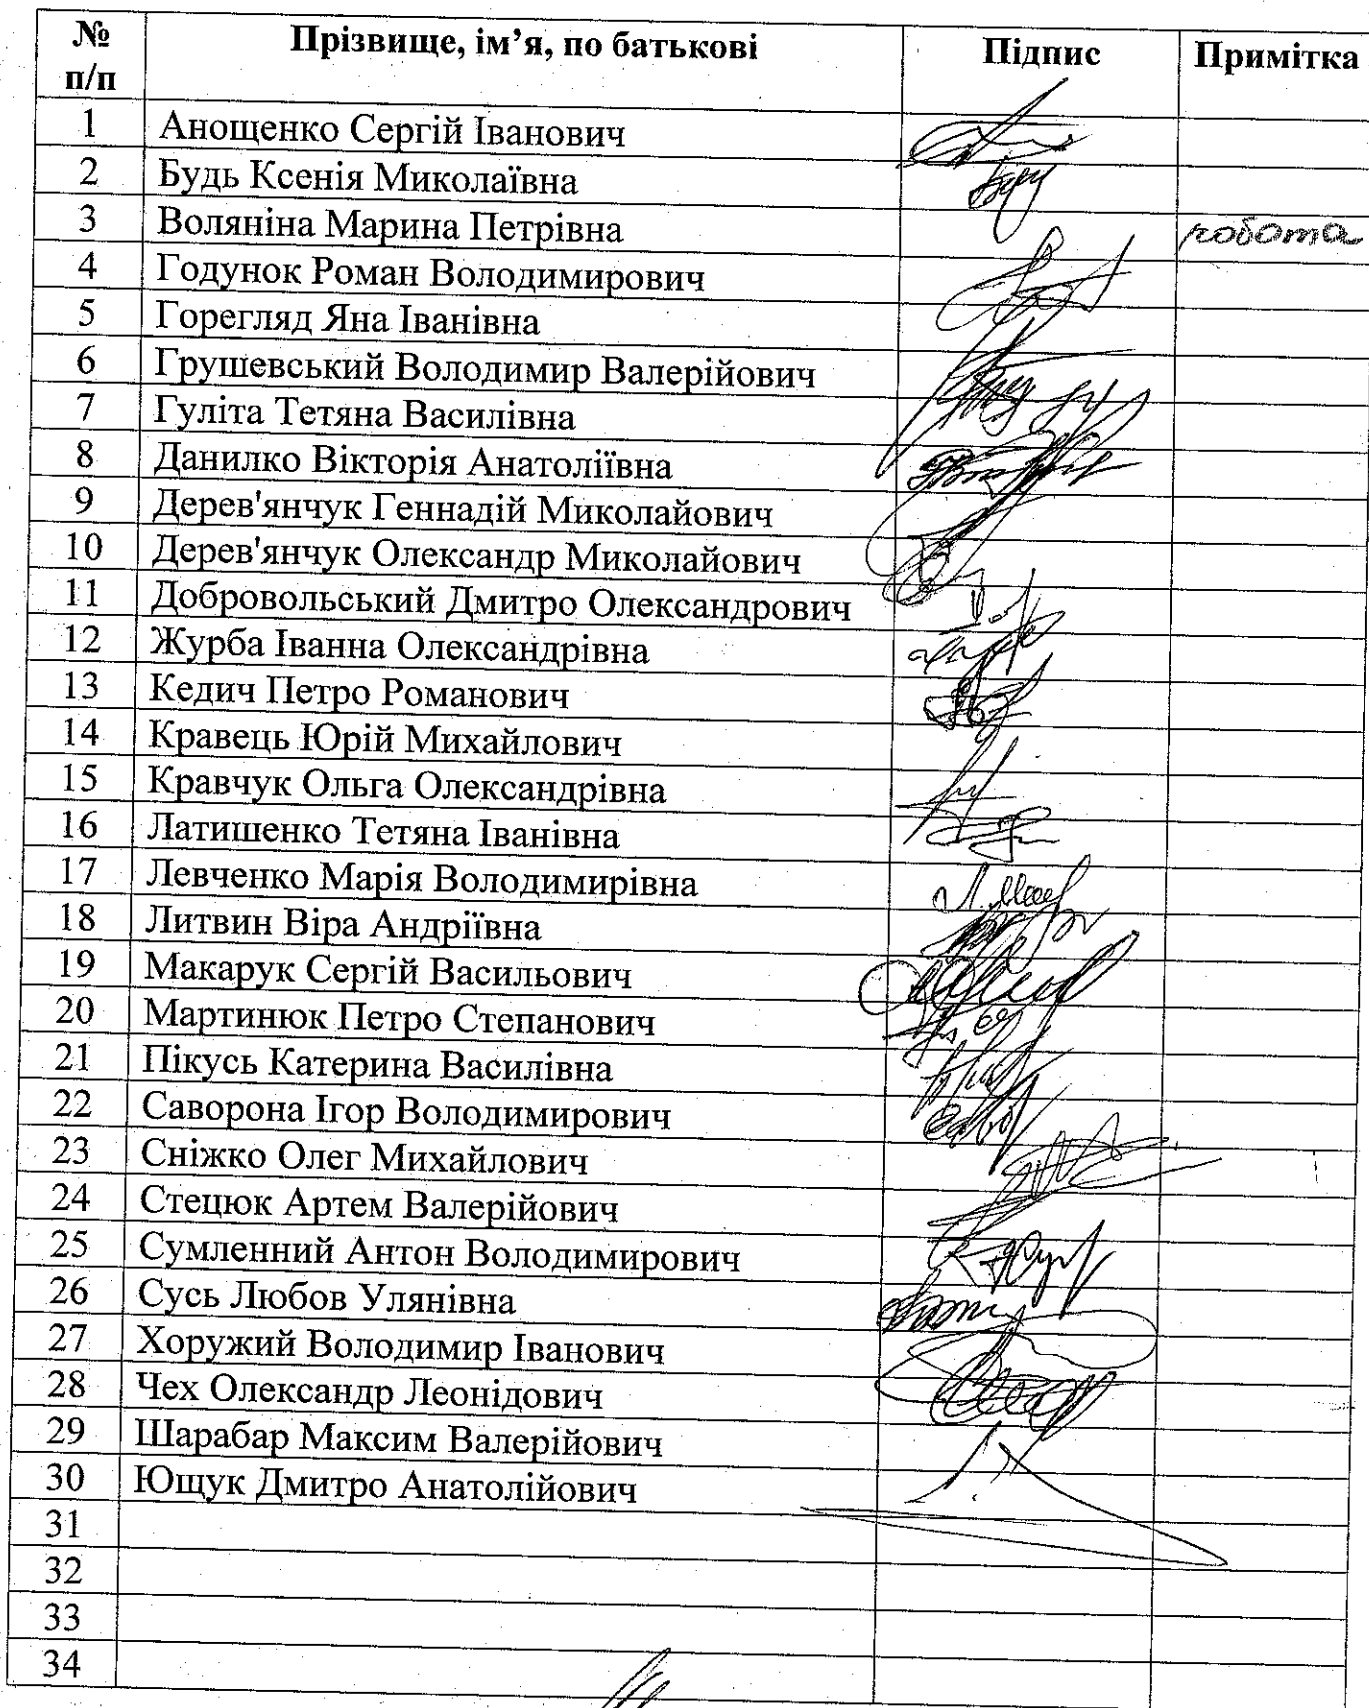 № п/п Прізвище, ім’я, по батькові Підпис Примітка
1 Анощенко Сергій Іванович
2 Будь Ксенія Миколаївна
3 Воляніна Марина Петрівна робота
4 Годунок Роман Володимирович
5 Горегляд Яна Іванівна
6 Грушевський Володимир Валерійович
7 Гуліта Тетяна Василівна
8 Данилко Вікторія Анатоліївна
9 Дерев'янчук Геннадій Миколайович
10 Дерев'янчук Олександр Миколайович
11 Добровольський Дмитро Олександрович
12 Журба Іванна Олександрівна
13 Кедич Петро Романович
14 Кравець Юрій Михайлович
15 Кравчук Ольга Олександрівна
16 Латишенко Тетяна Іванівна
17 Левченко Марія Володимирівна
18 Литвин Віра Андріївна
19 Макарук Сергій Васильович
20 Мартинюк Петро Степанович
21 Пікусь Катерина Василівна
22 Саворона Ігор Володимирович
23 Сніжко Олег Михайлович
24 Стецюк Артем Валерійович
25 Сумленний Антон Володимирович
26 Сусь Любов Улянівна
27 Хоружий Володимир Іванович
28 Чех Олександр Леонідович
29 Шарабар Максим Валерійович
30 Ющук Дмитро Анатолійович
31
32
33
34